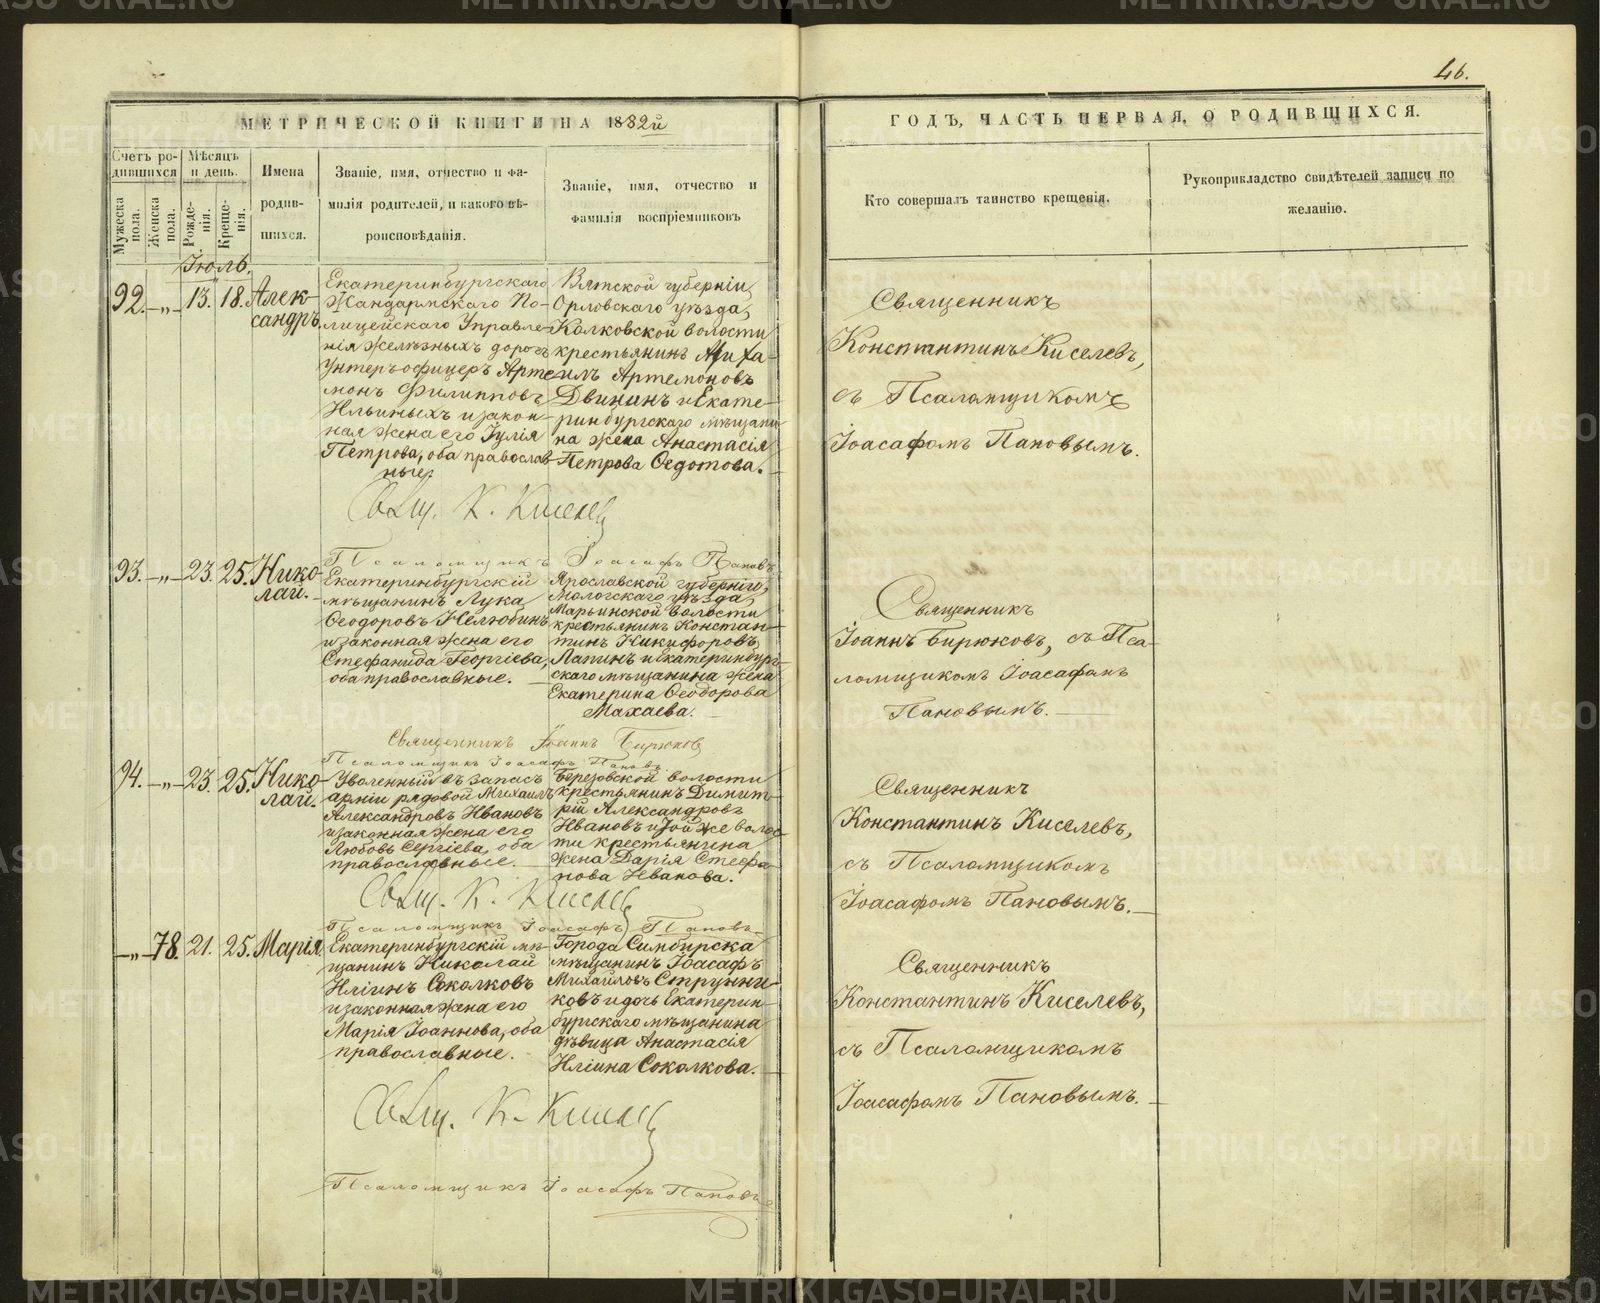 46.
МЕТРИЧЕСКОЙ КНИГИ НА 1882й
ГОДЪ, ЧАСТЬ ПЕРВАЯ, О РОДИВШИХСЯ.
Счетъ родившихся
Мужеска пола.
Женска пола.
Мѣсяцъ и день.
Рожденія.
Крещенія.
Имена родившихся.
Званіе, имя, отчество и фамилія родителей, и какого вѣроисповѣданія.
Званіе, имя, отчество и фамилія воспріемниковъ
Кто совершалъ таинство крещенія.
Рукоприкладство свидѣтелей записи по желанію.
Іюль.
92. -„- 13. 18. Алек-
сандръ.
Екатеринбургскаго
Жандармскаго По-
лицейскаго Управле-
нія желѣзныхъ дорогъ
Унтеръ-офицеръ Арте-
монъ Филипповъ
Ильиныхъ и закон-
ная жена его Іулія
Петрова, оба православ-
ные.
Вятской губерніи,
Орловскаго уѣзда,
Колковской волости
крестьянинъ
Артемоновъ
Двининъ и Екате-
ринбургскаго мѣщани-
на жена Анастасія
Петрова Ѳедотова.
Священникъ
Константинъ Киселевъ,
съ Псаломщикомъ
Іоасафомъ Пановымъ.
Свящ. К. Киселевъ
Псаломщикъ Іоасафъ Пановъ
93. -„- 23. 25. Нико-
лай.
Екатеринбургскій
мѣщанинъ Лука
Ѳеодоровъ Нелюбинъ
и законная жена его
Стефанида Георгіева,
оба православные.
Ярославской губерніи,
Мологскаго уѣзда,
Марьинской волости
крестьянинъ Констан-
тинъ Никифоровъ
Лапинъ и екатеринбург-
скаго мѣщанина жена
Екатерина Ѳеодорова
Махаева.
Священникъ
Іоаннъ Бирюковъ, съ Пса-
ломщикомъ Іоасафомъ
Пановымъ.
Священникъ Іоаннъ Бирюковъ
Псаломщикъ Іоасафъ Пановъ
94. -„- 23. 25. Нико-
лай.
Уволенный въ запасъ
арміи рядовой Михаилъ
Александровъ Ивановъ
и законная жена его
Любовь Сергіева, оба
православные.
Березовской волости
крестьянинъ Димит-
рій Александровъ
Ивановъ и той же волос-
ти крестьянина
жена Дарія Стефа-
нова Иванова.
Священникъ
Константинъ Киселевъ,
съ Псаломщикомъ
Іоасафомъ Пановымъ.
Свящ. К. Киселевъ
Псаломщикъ Іоасафъ Пановъ
-„- 78. 21. 25. Марія.
Екатеринбургскій мѣ-
щанинъ Николай
Иліинъ Соколковъ
и законная жена его
Марія Іоаннова, оба
православные.
Города Симбирска
мѣщанинъ Іоасафъ
Михайловъ Струнни-
ковъ и дочь Екатерин-
бургскаго мѣщанина
дѣвица Анастасія
Иліина Соколкова.
Священникъ
Константинъ Киселевъ,
съ Псаломщикомъ
Іоасафомъ Пановымъ.
Свящ. К. Киселевъ
Псаломщикъ Іоасафъ Пановъ
METRIKI.GASO-URAL.RU